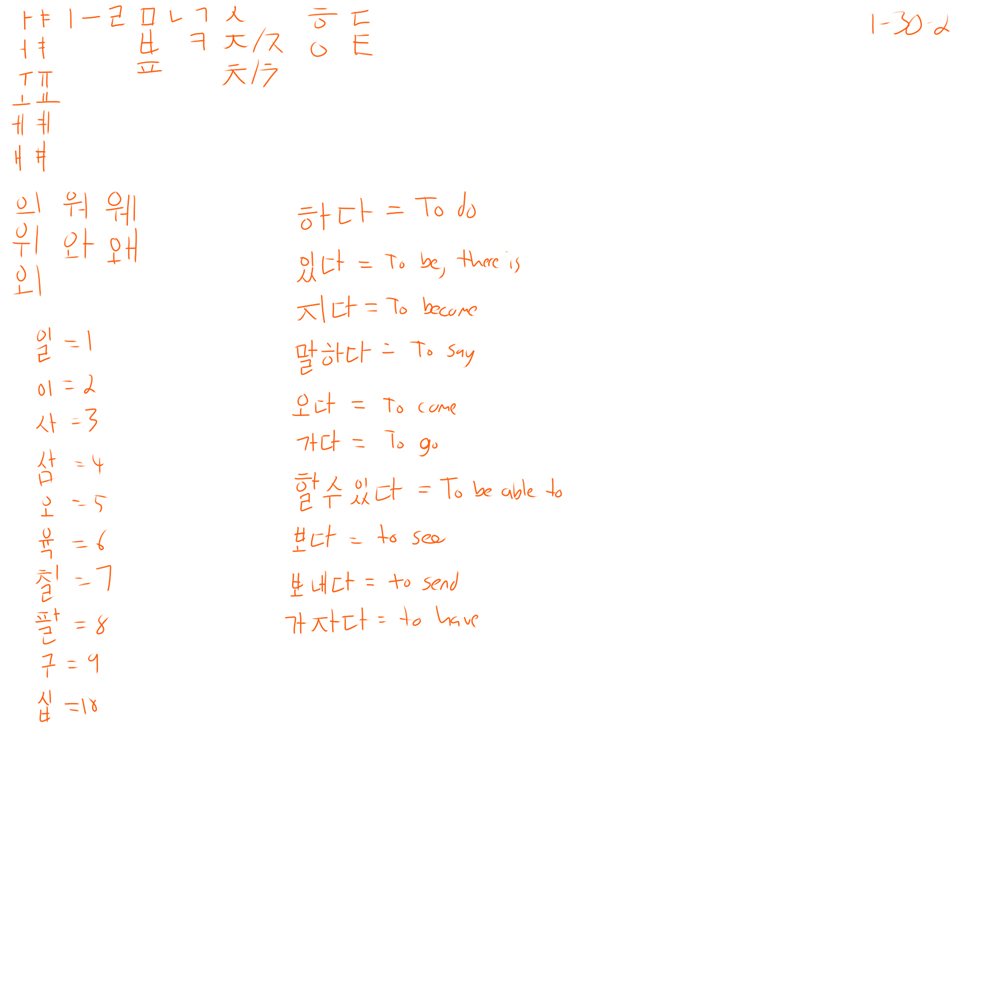 ㅏ ㅑ ㅣ ㅡ ㄹ ㅁ ㄴ ㄱ ㅅ ㅎ ㄷ
1-30-2
ㅓ ㅕ ㅂ ㅋ ㅈ/ㅈ ㅇ ㅌ
ㅜ ㅠ ㅍ ㅊ/ㅊ
ㅗ ㅛ
ㅔ ㅖ
ㅐ ㅒ
의 워 웨
위 와 왜
외
일 = 1
이 = 2
사 = 3
삼 = 4
오 = 5
육 = 6
칠 = 7
팔 = 8
구 = 9
십 = 10
하다 = To do
있다 = To be, there is
지다 = To become
말하다 = To say
오다 = To come
가다 = To go
할 수 있다 = To be able to
보다 = to see
보내다 = to send
가자다 = to have